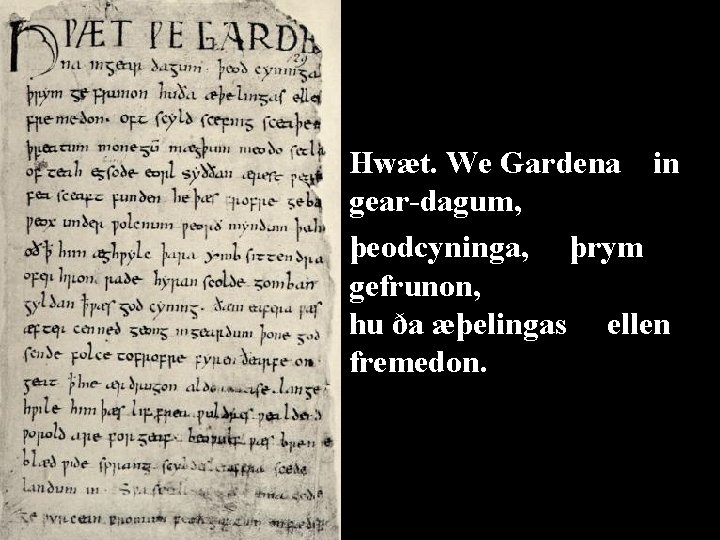 HǷÆT ǷE GARDE
129
na ingear dagum. þeod cyninga
þrym ge frunon huða æþelingas elle
fremedon. oft scyld scefing sceaþe
þreatum monegū mægþum meodo setla
of teah egsode eorl syððan ærest
fea sceaft funden he þæs frofre geba
ƿeox under ƿolcnum ƿeorð myndum þah
oð þ̵ him æghƿylc þara ymb sittendra
ofer hron rade hyran scolde gomban
gyldan þ̵ ƿæs god cyning. ðæm eafera ƿæs
æfter cenned geong ingeardum þone god
sende folce tofrofre fyren ðearfe on
geat þ̵ hie ær drugon aldor ase. lange
hƿile him þæs lif frea ƿuldres ƿealde
ƿorold are for geaf. beoƿulf ƿæs breme
blæd ƿide sprang scyldes eafera scede
landum in
Hwæt. We Gardena in
gear-dagum,
þeodcyninga, þrym
gefrunon,
hu ða æþelingas ellen
fremedon.